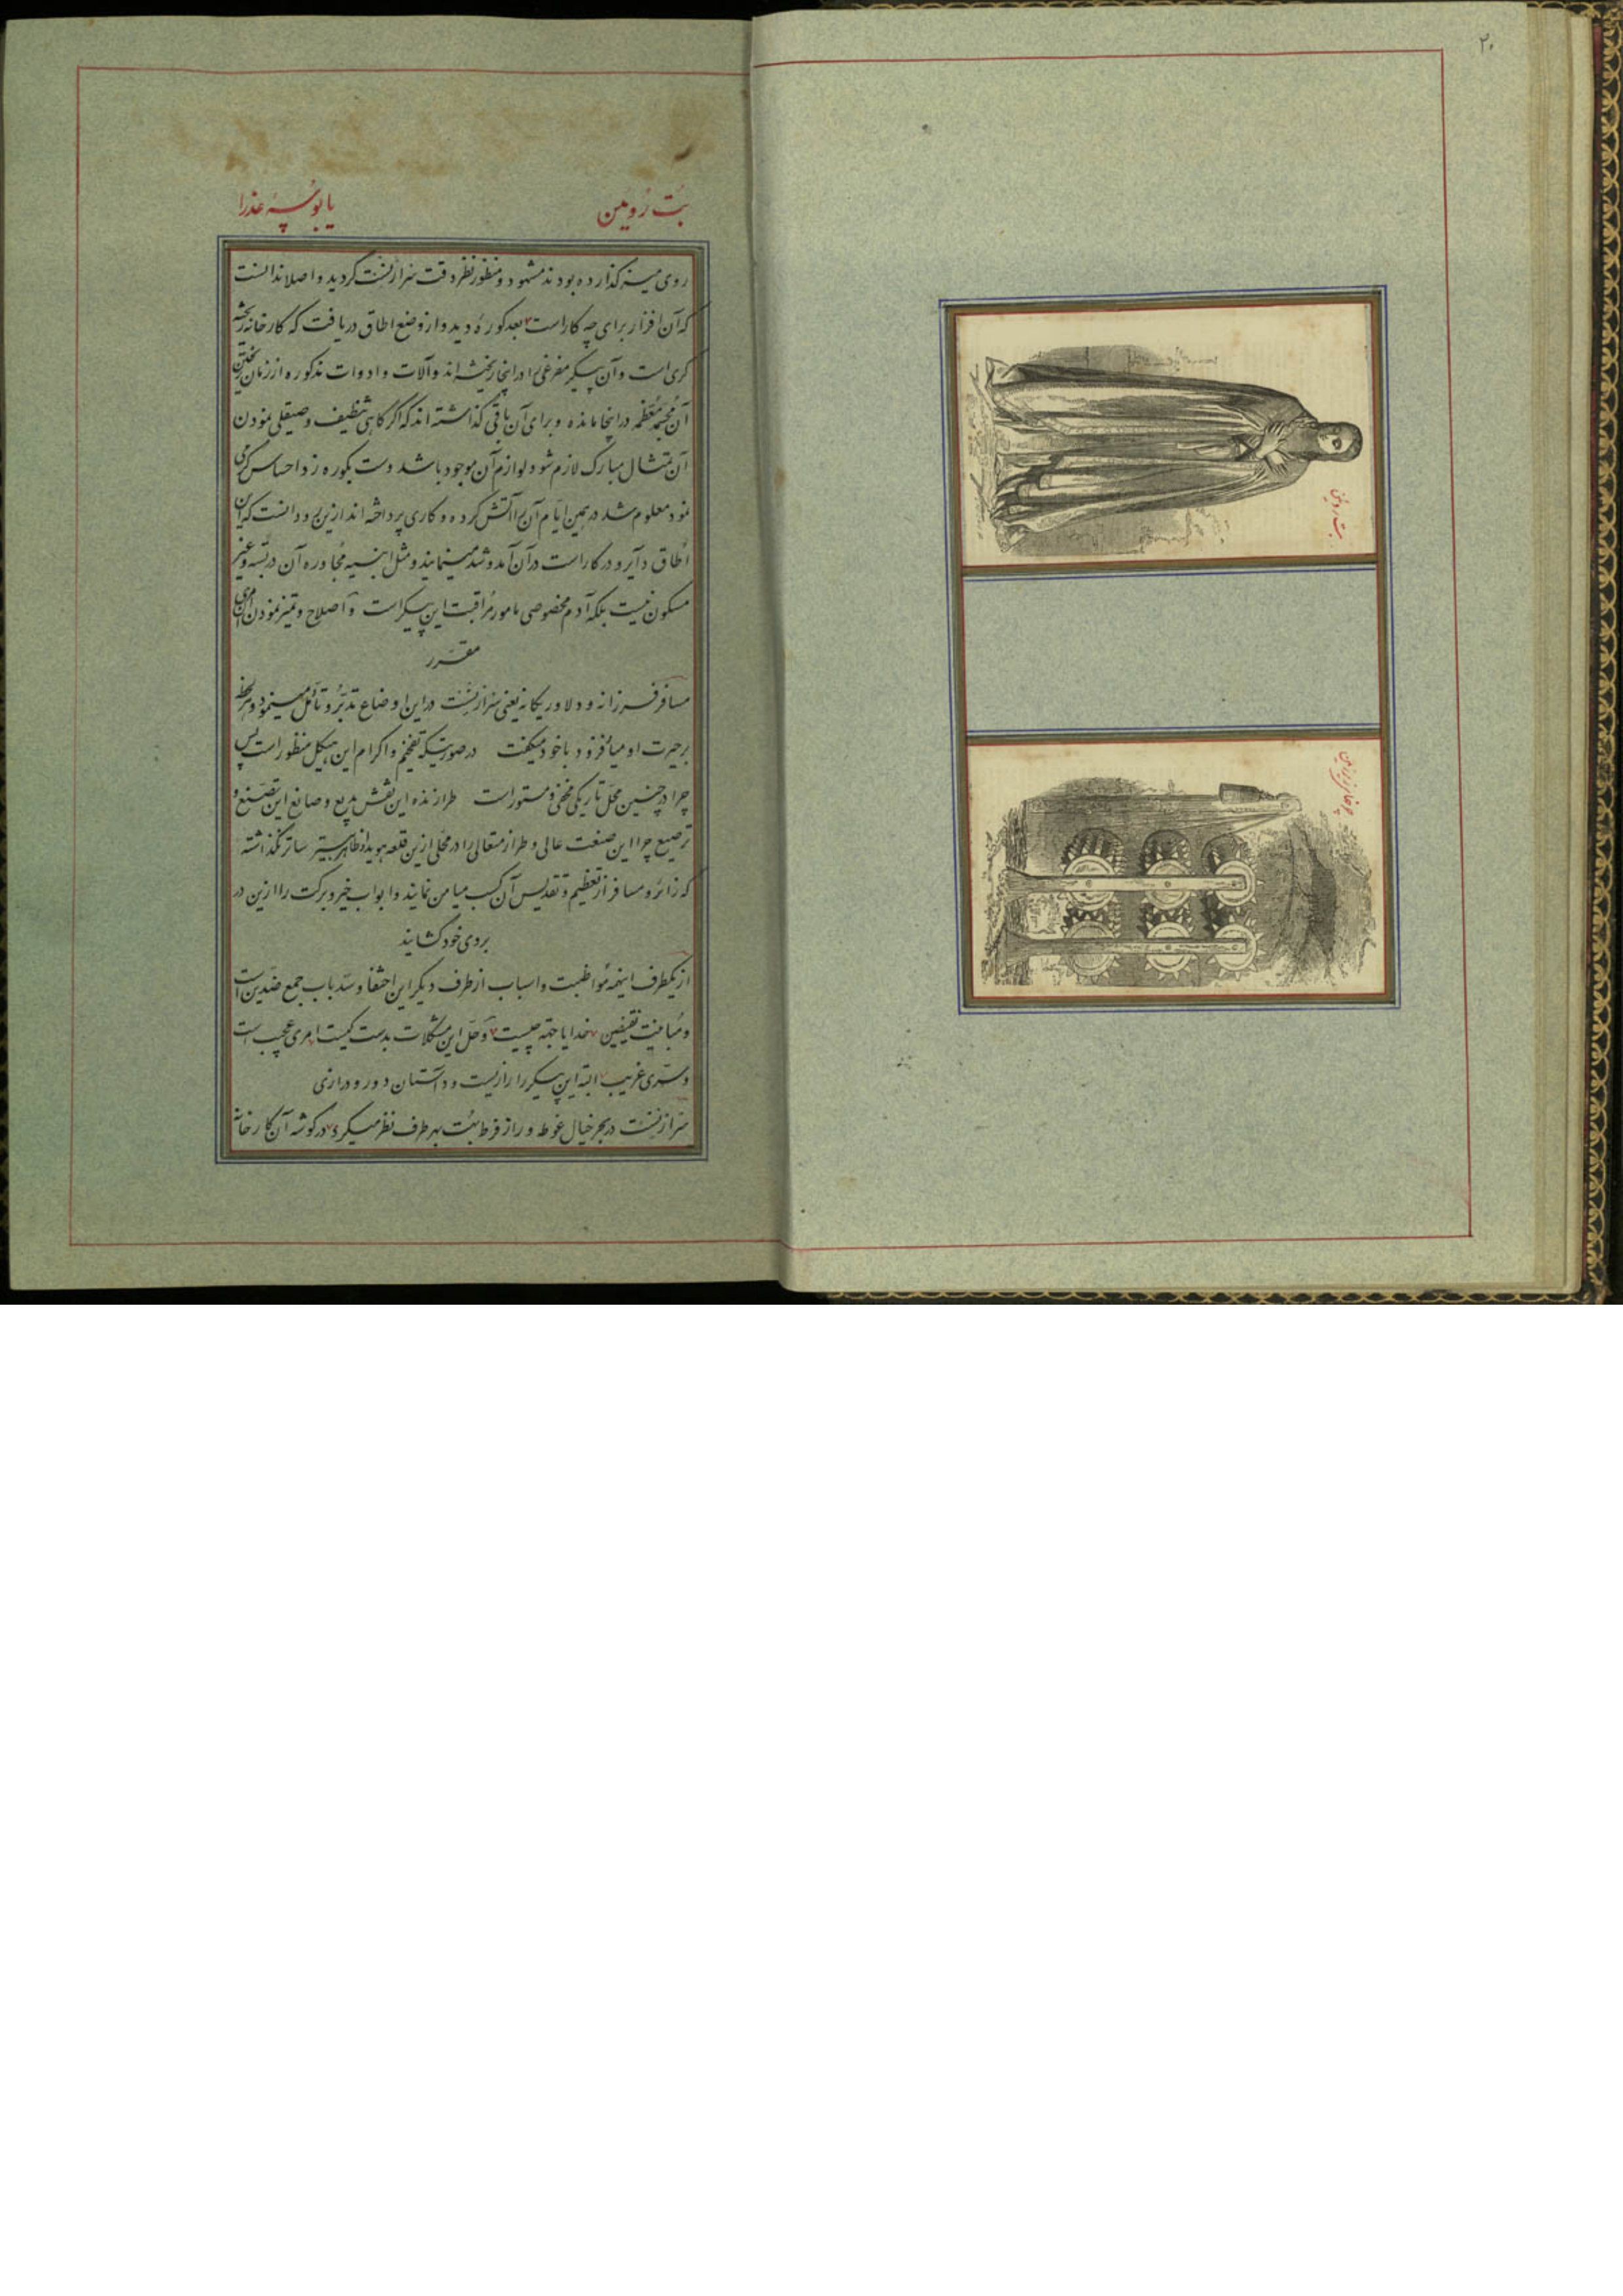 ۲۰
بت روئین
چرخهای زیرزمین
بُت رُوئین
یا بوسهٔ عذرا
روی میز گذارده بودند مشهود و منظور نظر دقت سزارنست گردید و اصلا ندانست
که آن افزار برای چه کار است بعد کوره دید و از وضع اطاق دریافت که کارخانه ریخته
گری است و آن پیکر مفرغی را در اینجا ریخته‌اند و آلات و ادوات مذکوره از زمان ریختن
آن مجسمه معظمه در اینجا مانده و برای آن باقی گذاشته‌اند که اگر گاهی تنظیف و صیقلی نمودن
آن تمثال مبارک لازم شود لوازم آن موجود باشد دست بکوره زد احساس گرمی
نمود معلوم شد در همین ایام آن را آتش کرده و کاری پرداخته‌اند ازین رو دانست که این
اُطاق دایر و در کار است در آن آمد و شد مینمایند و مثل ابنیه مُجاوره آن دربسته و غیر
مسکون نیست بلکه آدم مخصوصی مامور مُراقبت این پیکر است و اصلاح و تمیز نمودن
مقرر
مسافر فرزانه و دلاور یگانه یعنی سزارنست در این اوضاع تدبّر و تأمّل مینمود و هر لحظه
بر حیرت او میافزود با خود میگفت در صورتیکه تفخیم و اکرام این هیکل منظور است پس
چرا در چنین محل تاریکی مخفی و مستور است طرازنده این نقش بدیع و صانع این تصنیع و
ترصیع چرا این صنعت عالی و طراز متعالی را در محلی ازین قلعه هویدا و ظاهر بی ستر ساتر نگذاشته
که زائر و مسافر از تعظیم و تقدیس آن کسب میامن نمایند و ابواب خیر و برکت را ازین در
بروی خود گشایند
از یکطرف اینهمه مواظبت و اسباب از طرف دیگر این اختفا و سدّ باب جمع ضدّین است
و مُباینت نقیضین خدایا جهة چیست و حلّ این مشکلات بدست کیست امری عجیب است
و سرّی غریب البته این پیکر را رازیست و داستان دور و درازی
سزارنست در بحر خیال غوطه ور از فرط بُهت بهر طرف نظر میکرد در گوشه آن کارخانه